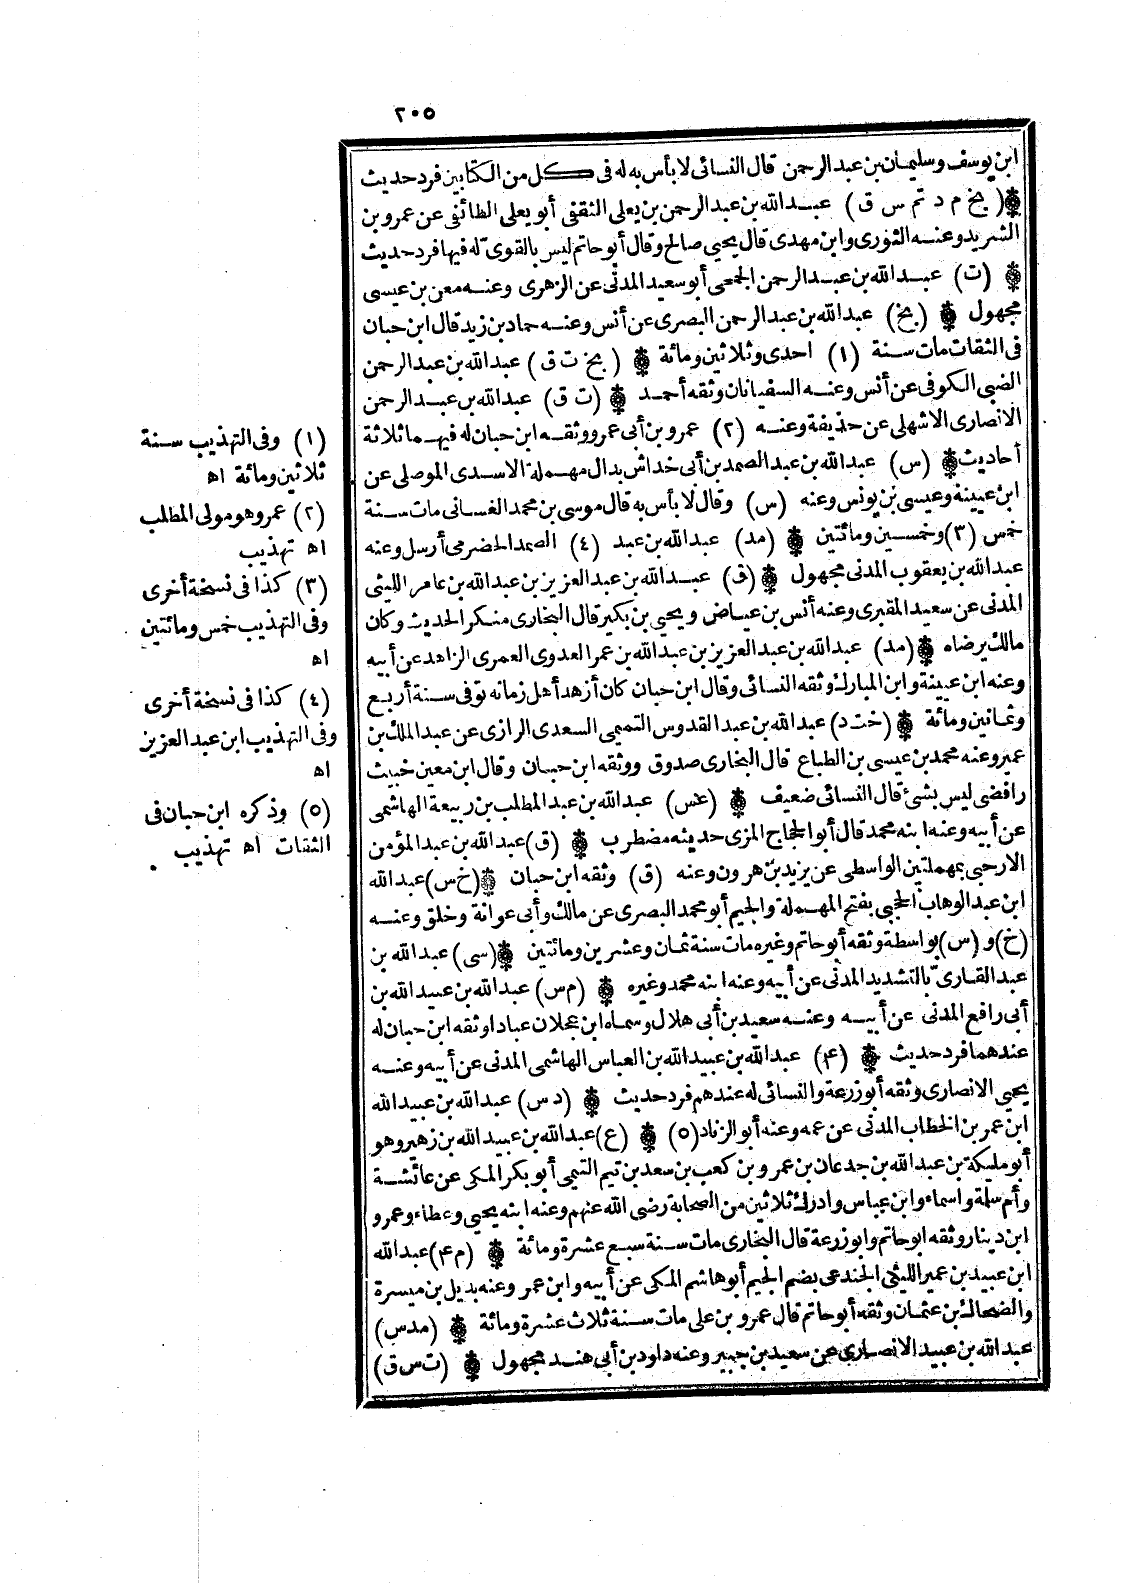 ٢٠٥
ابن يوسف وسليمان بن عبد الرحمن قال النسائى لا بأس به له فى كل من الكتابين فرد حديث
(بخ م د تم س ق) عبد الله بن عبد الرحمن بن يعلى الثقفى أبو يعلى الطائفى عن عمرو بن
الشريد وعنه الثورى وابن مهدى قال يحيى صالح وقال أبو حاتم ليس بالقوى له فيها فرد حديث
(ت) عبد الله بن عبد الرحمن الجمعى أبو سعيد المدنى عن الزهرى وعنه معن بن عيسى
مجهول (بخ) عبد الله بن عبد الرحمن البصرى عن أنس وعنه حماد بن زيد قال ابن حبان
فى الثقات مات سنة (١) احدى وثلاثين ومائة (بخ ت ق) عبد الله بن عبد الرحمن
الضبى الكوفى عن أنس وعنه السفيانان وثقه أحمد (ت ق) عبد الله بن عبد الرحمن
الانصارى الاشهلى عن حذيفة وعنه (٢) عمرو بن أبى عمرو وثقه ابن حبان له فيهما ثلاثة
أحاديث (س) عبد الله بن عبد الصمد بن أبى خداش بدال مهملة الاسدى الموصلى عن
ابن عيينة وعيسى بن يونس وعنه (س) وقال لا بأس به قال موسى بن محمد الغسانى مات سنة
خمس (٣) وخمسين ومائتين (مد) عبد الله بن عبد (٤) الصمد الحضرمى أرسل وعنه
عبد الله بن يعقوب المدنى مجهول (ق) عبد الله بن عبد العزيز بن عبد الله بن عامر الليثى
المدنى عن سعيد المقبرى وعنه أنس بن عياض ويحيى بن بكير قال البخارى منكر الحديث وكان
مالك يرضاه (مد) عبد الله بن عبد العزيز بن عبد الله بن عمر العدوى العمرى الزاهد عن أبيه
وعنه ابن عيينة وابن المبارك وثقه النسائى وقال ابن حبان كان أزهد أهل زمانه توفى سنة أربع
وثمانين ومائة (خت د) عبد الله بن عبد القدوس التميمى السعدى الرازى عن عبد الملك بن
عمير وعنه محمد بن عيسى بن الطباع قال البخارى صدوق ووثقه ابن حبان وقال ابن معين خبيث
رافضى ليس بشئ قال النسائى ضعيف (عس) عبد الله بن عبد المطلب بن ربيعة الهاشمى
عن أبيه وعنه ابنه محمد قال أبو الحجاج المزى حديثه مضطرب (ق) عبد الله بن عبد المؤمن
الارحبى بمهملتين الواسطى عن يزيد بن هرون وعنه (ق) وثقه ابن حبان (خ س) عبد الله
ابن عبد الوهاب الحجبى بفتح المهملة والجيم أبو محمد البصرى عن مالك وأبى عوانة وخلق وعنه
(خ) و(س) بواسطة وثقه أبو حاتم وغيره مات سنة ثمان وعشرين ومائتين (سى) عبد الله بن
عبد القارى بالتشديد المدنى عن أبيه وعنه ابنه محمد وغيره (م س) عبد الله بن عبيد الله بن
أبى رافع المدنى عن أبيه وعنه سعيد بن أبى هلال وسماه ابن عجلان عبادا وثقه ابن حبان له
عندهما فرد حديث (٤) عبد الله بن عبيد الله بن العباس الهاشمى المدنى عن أبيه وعنه
يحيى الانصارى وثقه أبو زرعة والنسائى له عندهم فرد حديث (د س) عبد الله بن عبيد الله
ابن عمر بن الخطاب المدنى عن عمه وعنه أبو الزناد (٥) (ع) عبد الله بن عبيد الله بن زهير وهو
أبو مليكة بن عبد الله بن جدعان بن عمرو بن كعب بن سعد بن تيم التيمى أبو بكر المكى عن عائشة
وأم سلمة واسماء وابن عباس وادرك ثلاثين من الصحابة رضى الله عنهم وعنه ابنه يحيى وعطاء وعمرو
ابن دينار وثقه ابو حاتم وابو زرعة قال البخارى مات سنة سبع عشرة ومائة (م ٤) عبد الله
ابن عبيد بن عمير الليثى الجندعى بضم الجيم أبو هاشم المكى عن أبيه وابن عمر وعنه بديل بن ميسرة
والضحاك بن عثمان وثقه أبو حاتم قال عمرو بن على مات سنة ثلاث عشرة ومائة (مد س)
عبد الله بن عبيد الانصارى عن سعيد بن جبير وعنه داود بن أبى هند مجهول (ت س ق)
(١) وفى التهذيب سنة
ثلاثين ومائة اه
(٢) عمر وهو مولى المطلب
اه تهذيب
(٣) كذا فى نسخة أخرى
وفى التهذيب خمس ومائتين
اه
(٤) كذا فى نسخة أخرى
وفى التهذيب ابن عبد العزيز
اه
(٥) وذكره ابن حبان فى
الثقات اه تهذيب